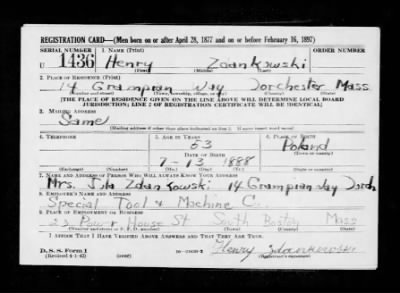 REGISTRATION CARD—(Men born on or after April 28, 1877 and on or before February 16, 1897)
SERIAL NUMBER 1. NAME (Print) ORDER NUMBER
U 1436 Henry Zdankowski
(First) (Middle) (Last)
2. PLACE OF RESIDENCE (Print)
14 Grampian Way Dorchester Mass
[THE PLACE OF RESIDENCE GIVEN ON THE LINE ABOVE WILL DETERMINE LOCAL BOARD
JURISDICTION; LINE 2 OF REGISTRATION CERTIFICATE WILL BE IDENTICAL]
3. MAILING ADDRESS
Same
[Mailing address if other than place indicated on line 2. If same insert word same]
4. TELEPHONE 5. AGE IN YEARS 6. PLACE OF BIRTH
53 Poland
DATE OF BIRTH (Town or county)
7-13 1888
(Mo.) (Day) (Yr.) (State or country)
7. NAME AND ADDRESS OF PERSON WHO WILL ALWAYS KNOW YOUR ADDRESS
Mrs. Zdankowski 14 Grampian Way Dorch
8. EMPLOYER'S NAME AND ADDRESS
Special Tool & Machine C.
9. PLACE OF EMPLOYMENT OR BUSINESS
Power House St South Boston Mass
I AFFIRM THAT I HAVE VERIFIED ABOVE ANSWERS AND THAT THEY ARE TRUE.
D. S. S. Form 1
(Revised 4-1-42) (over) Henry Zdankowski